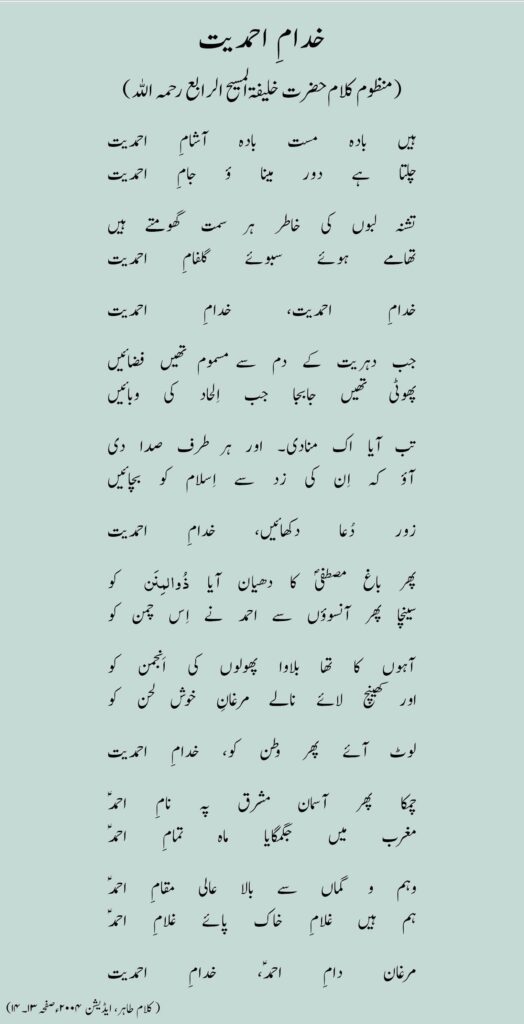 خدامِ احمدیت
(منظوم کلام حضرت خلیفۃ المسیح الرابع رحمہ اللہ)
ہیں بادہ مست بادہ آشامِ احمدیت
چلتا ہے دور مینا ؤ جامِ احمدیت
تشنہ لبوں کی خاطر ہر سمت گھومتے ہیں
تھامے ہوئے سبوئے گلفامِ احمدیت
خدامِ احمدیت، خدامِ احمدیت
جب دہریت کے دم سے مسموم تھیں فضائیں
پھوٹی تھیں جابجا جب اِلحاد کی وبائیں
تب آیا اک منادی۔ اور ہر طرف صدا دی
آؤ کہ اِن کی زد سے اِسلام کو بچائیں
زور دُعا دکھائیں، خدامِ احمدیت
پھر باغِ مصطفیٰؐ کا دھیان آیا ذُوالمِنَن کو
سینچا پھر آنسوؤں سے احمد نے اِس چمن کو
آہوں کا تھا بلاوا پھولوں کی اَنجمن کو
اور کھینچ لائے نالے مرغانِ خوش لحن کو
لوٹ آئے پھر وطن کو، خدامِ احمدیت
چمکا پھر آسمان مشرق پہ نامِ احمدؑ
مغرب میں جگمگایا ماہ تمامِ احمدؑ
وہم و گماں سے بالا عالی مقامِ احمدؑ
ہم ہیں غلامِ خاک پائے غلامِ احمدؑ
مرغان دامِ احمدؑ، خدامِ احمدیت
(کلام طاہر، ایڈیشن ۲۰۰۴ء صفحہ ۱۳۔۱۴)